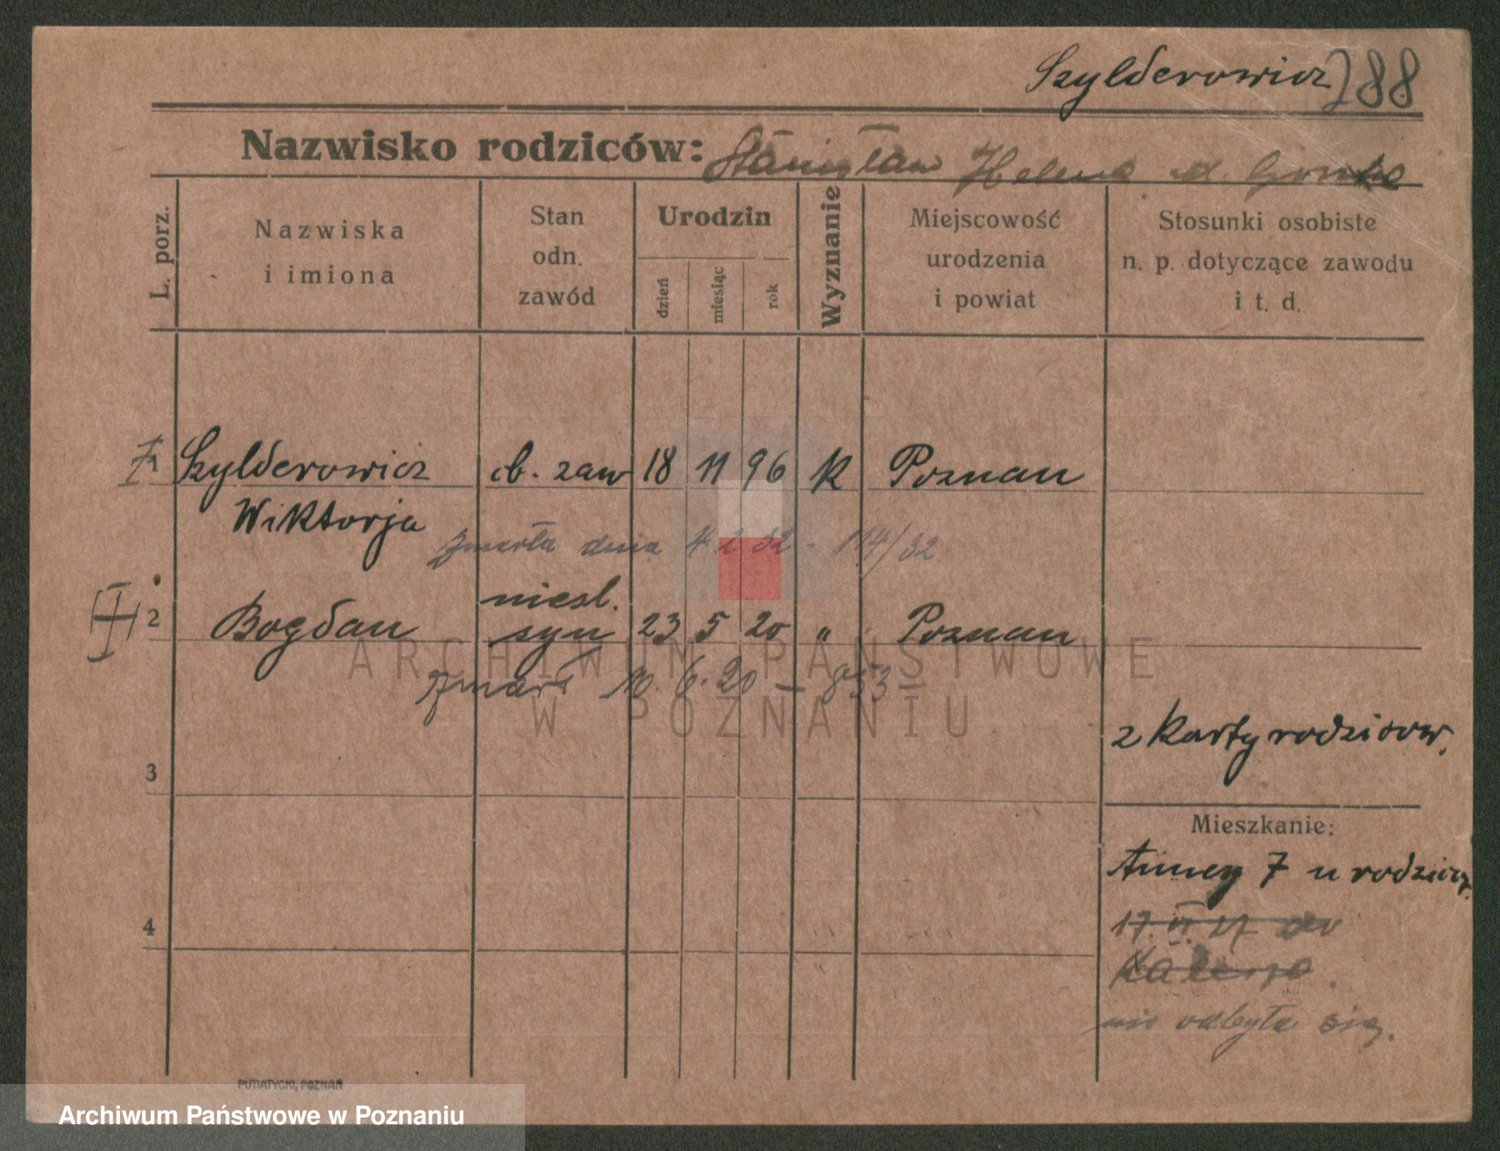 Szylderowicz 288
Nazwisko rodziców: Stanisław Helena d.
L. porz.
Nazwiska
i imiona
Stan
odn.
zawód
Urodzin
dzień
miesiąc
rok
Wyznanie
Miejscowość
urodzenia
i powiat
Stosunki osobiste
n. p. dotyczące zawodu
i t. d.
1 Szylderowicz b. zaw 18 11 96 k Poznan
Wiktorja
zmarła dnia 32 - 114/32
niesl.
2 Bogdan syn 23 5 20 " Poznan
zmarł 10. 6. 20 – 853 –
ARCHIWUM PAŃSTWOWE
W POZNANIU
z karty rodzicow.
3
Mieszkanie:
7 u rodzicow.
4
17. VI 27 do
nie odbyła się.
PUTIATYCKI, POZNAŃ
Archiwum Państwowe w Poznaniu